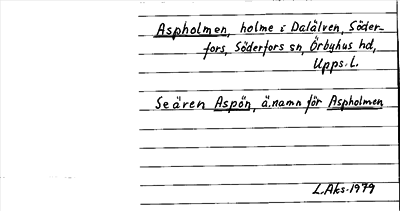 Aspholmen, holme i Dalälven, Söder-
fors, Söderfors sn, Örbyhus hd,
Upps. l.
Se även Aspön, ä. namn för Aspholmen
L. Aks. 1979